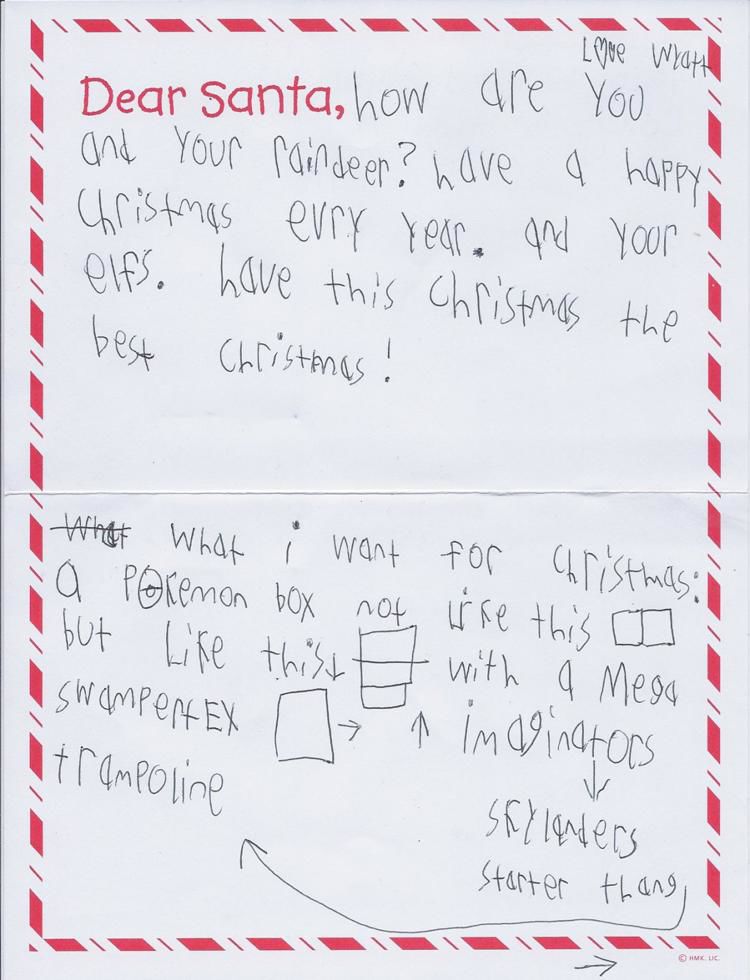 Love Wyatt
Dear Santa, how are you
and your raindeer? have a happy
Christmas evry year. and your
elfs. have this Christmas the
best Christmas!
What what i want for Christmas:
a Pokemon box not like this
but like this with a Mega
swampert EX imaginators
trampoline
skylanders
starter thang
© HMK. LIC.